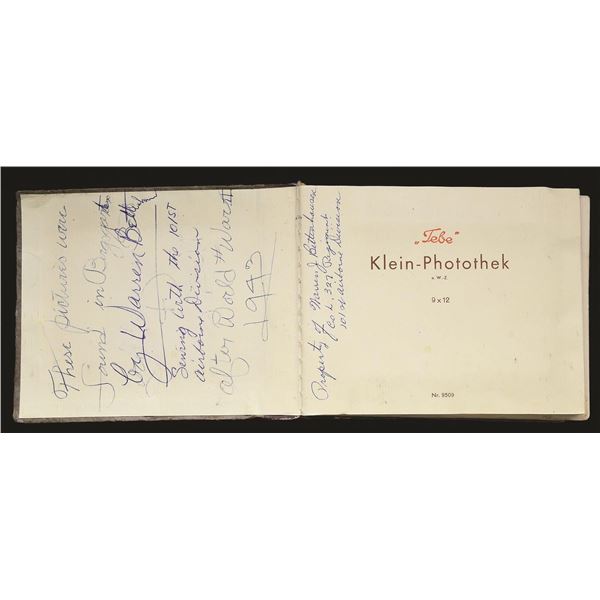 These pictures were
found in
by Warren
Serving with the 101ST
Airborne Division
after World War II
1943
Property of Warren J
Co L. 327 Regiment
101st Airborne Division
„Tebe“
Klein-Photothek
9 x 12
Nr. 9509